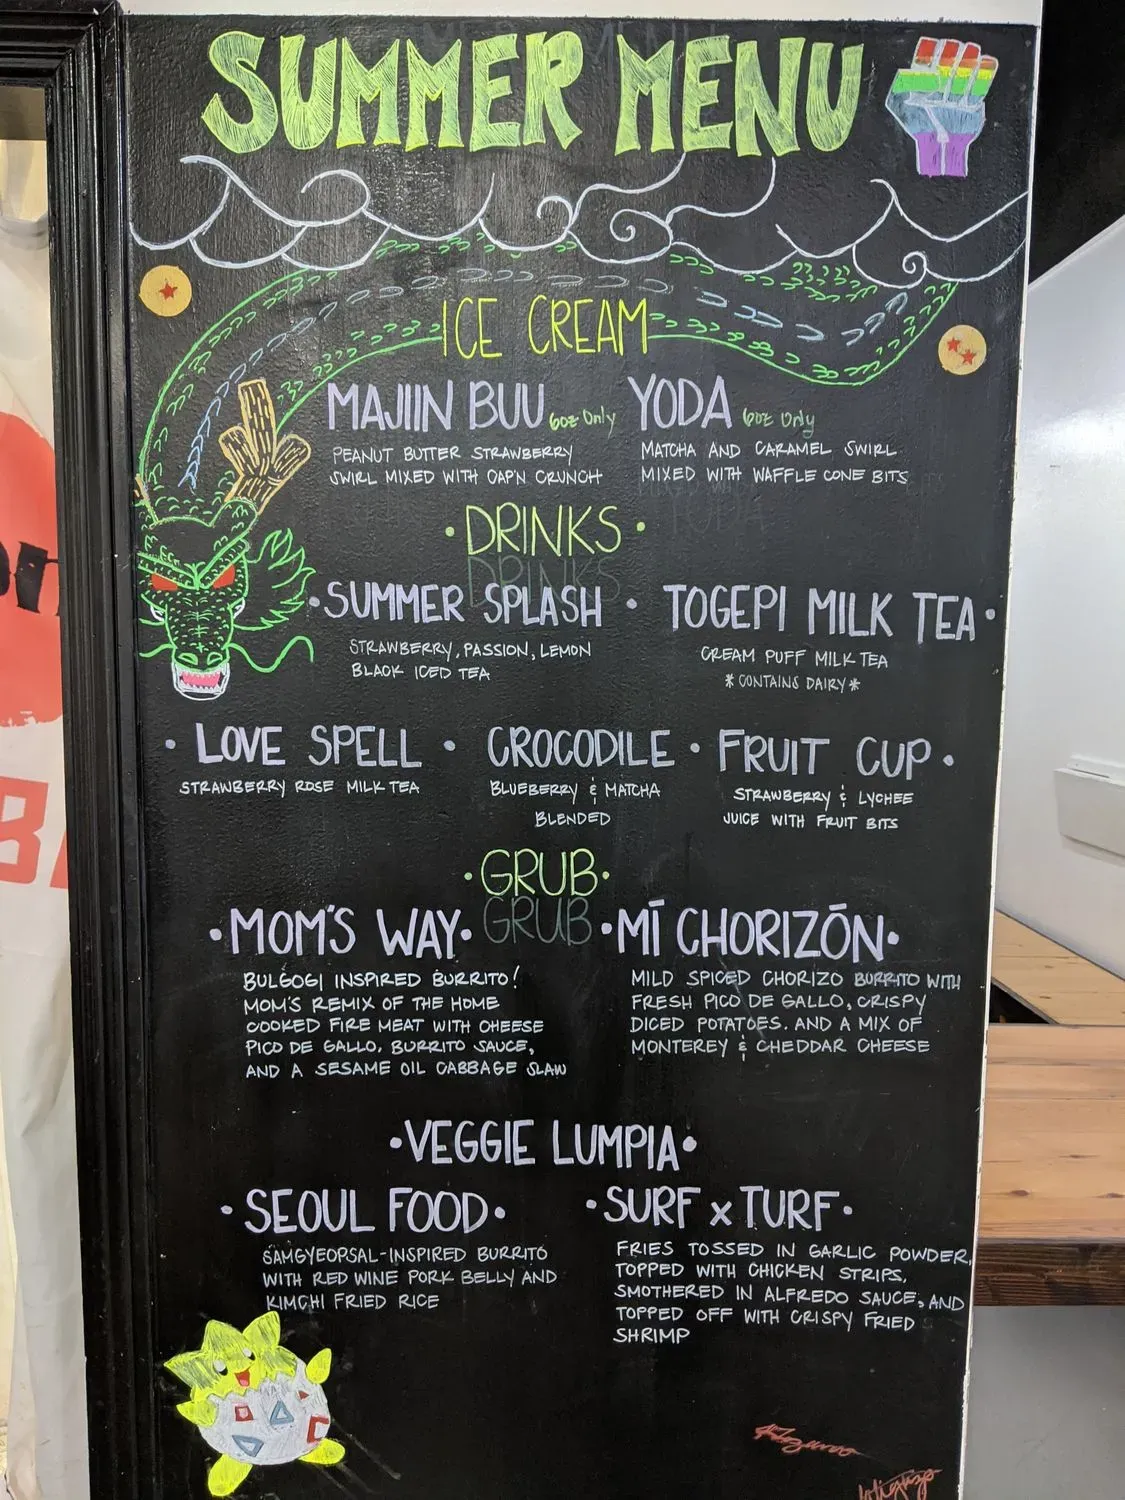 SUMMER MENU
ICE CREAM
MAJIIN BUU 6oz Only
PEANUT BUTTER STRAWBERRY
SWIRL MIXED WITH CAP'N CRUNCH
YODA 6oz Only
MATCHA AND CARAMEL SWIRL
MIXED WITH WAFFLE CONE BITS
·DRINKS·
DRINKS
·SUMMER SPLASH·
STRAWBERRY, PASSION, LEMON
BLACK ICED TEA
TOGEPI MILK TEA·
CREAM PUFF MILK TEA
*CONTAINS DAIRY*
·LOVE SPELL·
STRAWBERRY ROSE MILK TEA
CROCODILE·
BLUEBERRY & MATCHA
BLENDED
FRUIT CUP·
STRAWBERRY & LYCHEE
JUICE WITH FRUIT BITS
·GRUB·
GRUB
·MOM'S WAY·
BULGOGI INSPIRED BURRITO!
MOM'S REMIX OF THE HOME
COOKED FIRE MEAT WITH CHEESE
PICO DE GALLO, BURRITO SAUCE,
AND A SESAME OIL CABBAGE SLAW
·MÍ CHORIZÓN·
MILD SPICED CHORIZO BURRITO WITH
FRESH PICO DE GALLO, CRISPY
DICED POTATOES. AND A MIX OF
MONTEREY & CHEDDAR CHEESE
·VEGGIE LUMPIA·
·SEOUL FOOD·
SAMGYEOPSAL-INSPIRED BURRITO
WITH RED WINE PORK BELLY AND
KIMCHI FRIED RICE
·SURF x TURF·
FRIES TOSSED IN GARLIC POWDER,
TOPPED WITH CHICKEN STRIPS,
SMOTHERED IN ALFREDO SAUCE, AND
TOPPED OFF WITH CRISPY FRIED
SHRIMP